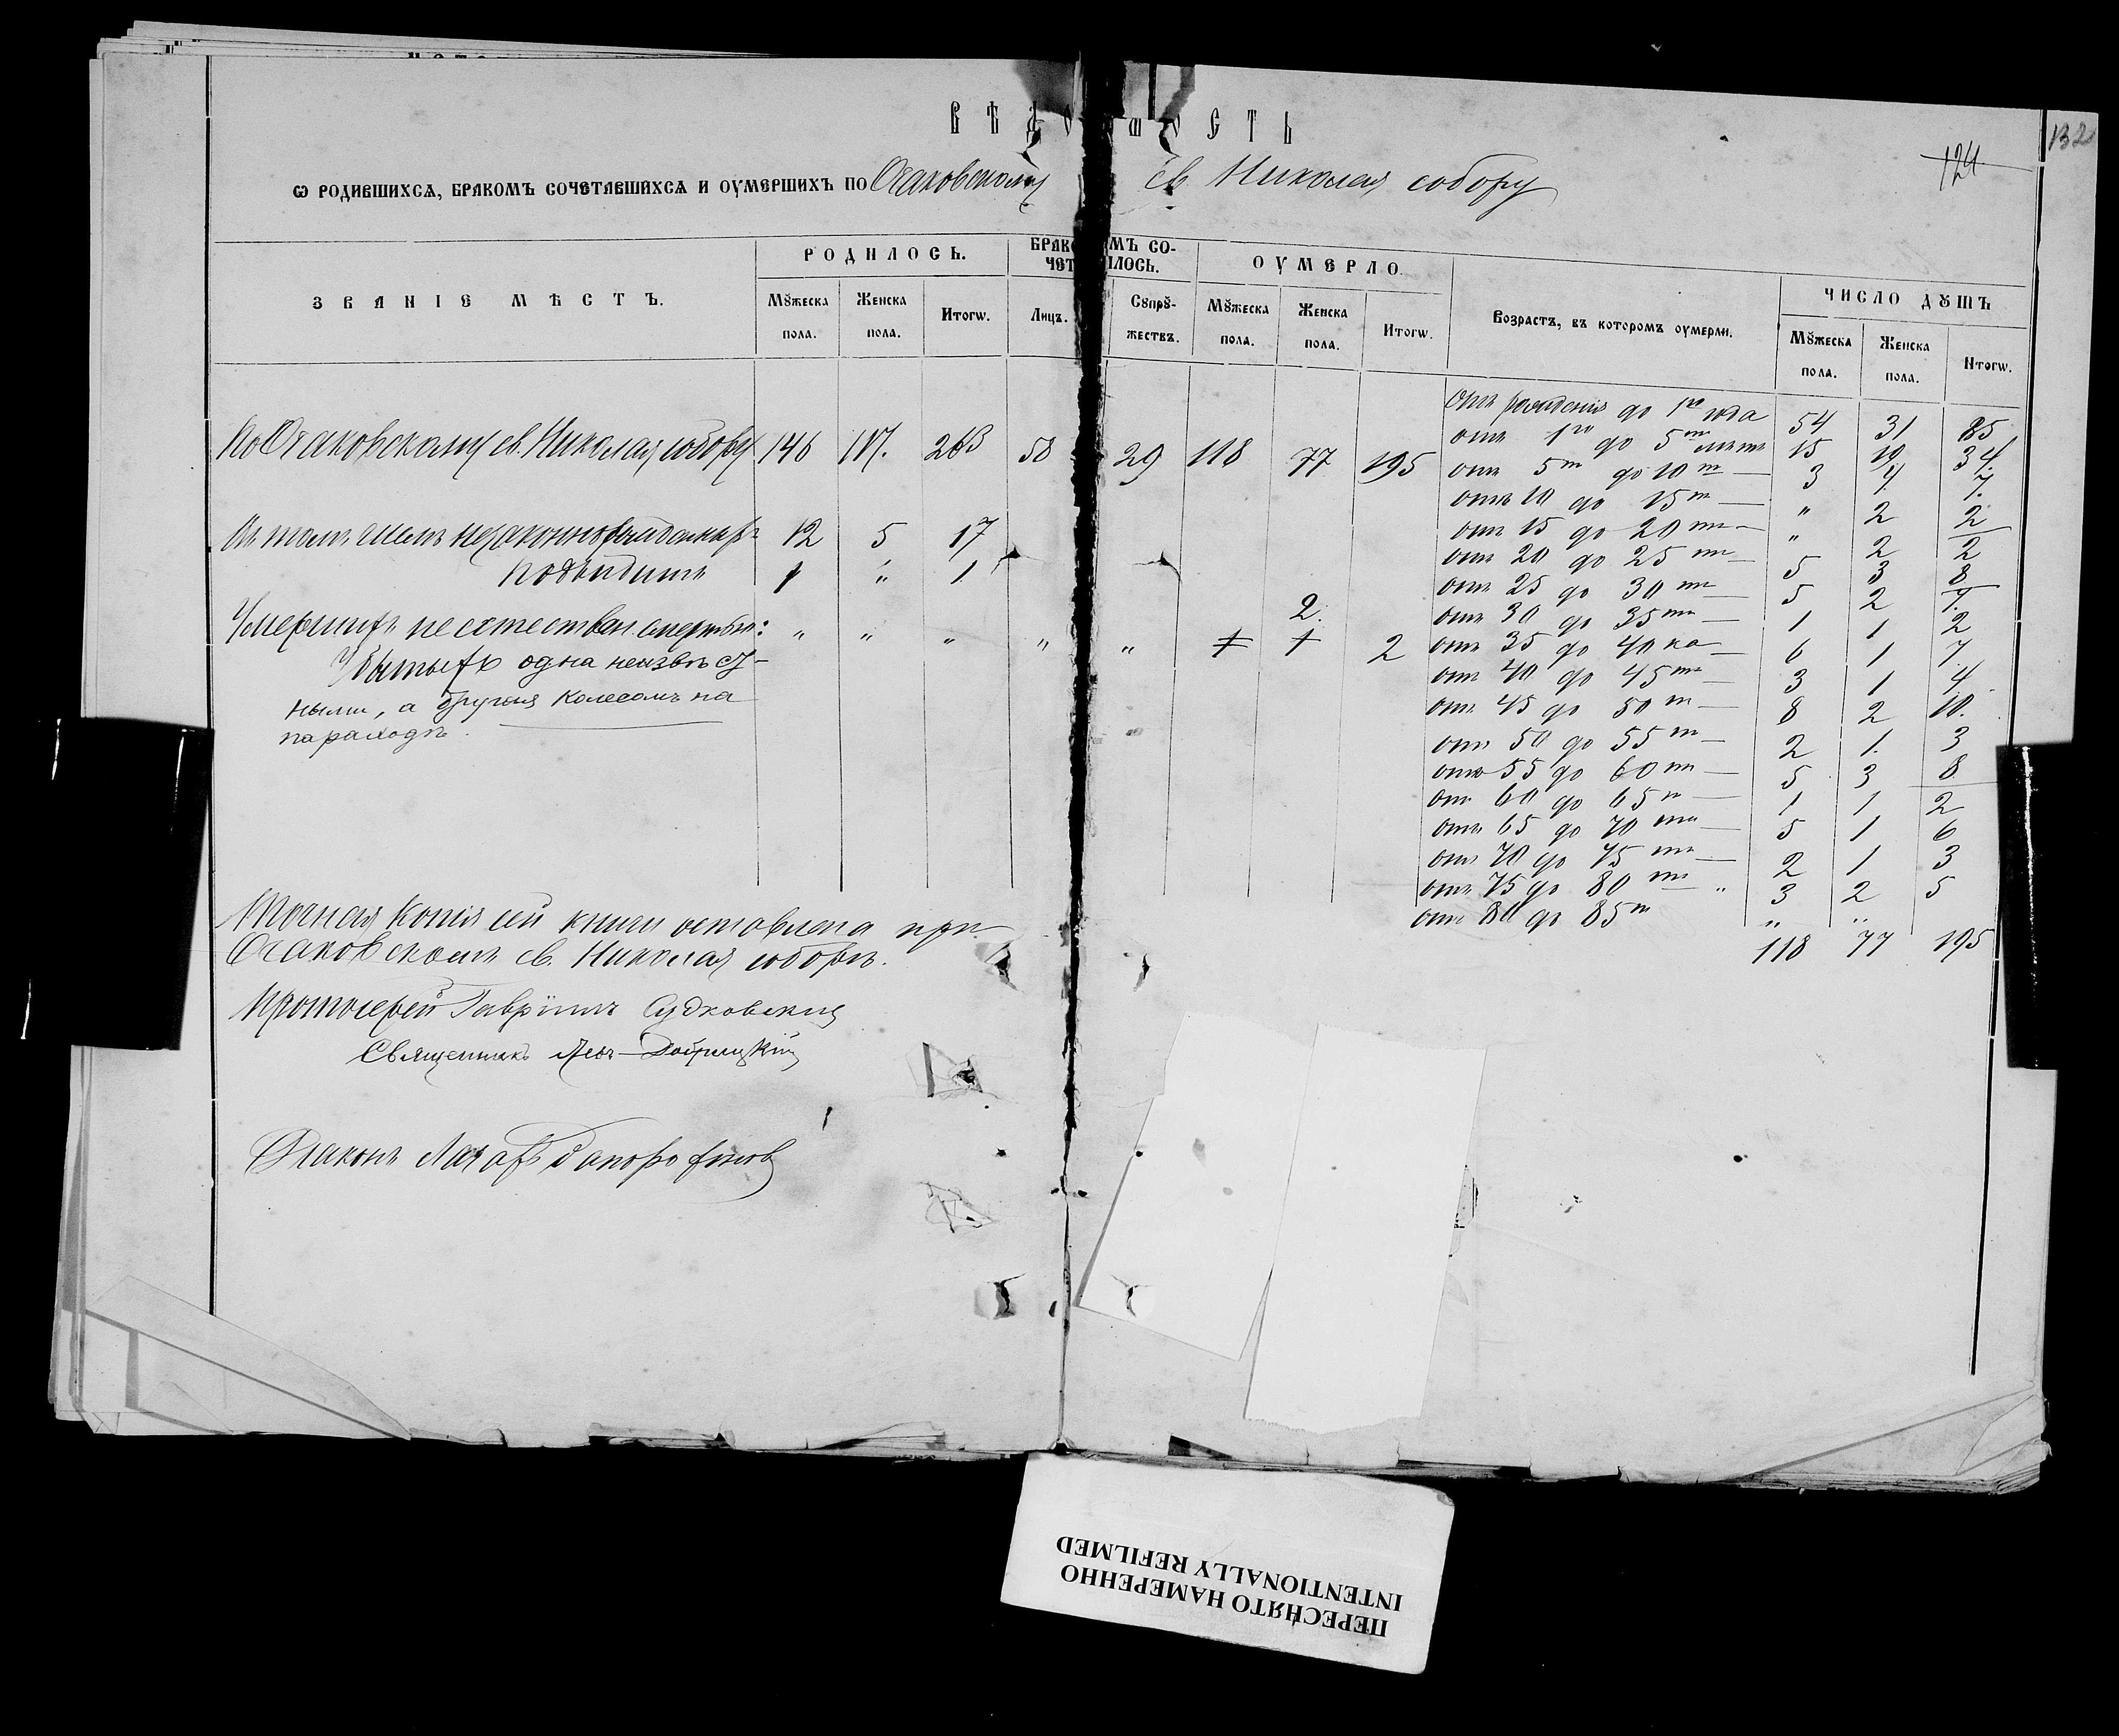 132
124
ВѢДОМОСТЬ
ѡ родившихсѧ, бракомъ сочетавшихсѧ и оумершихъ по Очаковскому св. Николая собору
ЗВАНІЕ МѢСТЪ.
РОДИЛОСЬ.
БРАКОМЪ СО-
ЧЕТАЛОСЬ.
ОУМЕРЛО.
Возрастъ, въ которомъ оумерли.
ЧИСЛО ДꙊШЪ
Мꙋжеска пола.
Женска пола.
Итогѡ.
Лицъ.
Сꙋпрꙋ-
жествъ.
Мꙋжеска пола.
Женска пола.
Итогѡ.
Мꙋжеска пола.
Женска пола.
Итогѡ.
По Очаковскому св. Николая собору 146 117. 263 58 29 118 77 195
Въ томъ числѣ незаконнорожденныхъ 12 5 17
Подкидышъ 1 " 1
Умершихъ неестествен. смертью: " " " " " 1 1 2. 2
Убитыхъ одна неизвѣст-
ными, а другая колесомъ на
параходѣ.
отъ рожденія до 1го года 54 31 85
отъ 1го до 5ти лѣтъ 15 19 34.
отъ 5ти до 10ти — 3 4 7.
отъ 10 до 15ти — " 2 2
отъ 15 до 20ти — " 2 2
отъ 20 до 25ти — 5 3 8
отъ 25 до 30ти — 5 2 7.
отъ 30 до 35ти — 1 1 2
отъ 35 до 40ка — 6 1 7
отъ 40 до 45ти — 3 1 4.
отъ 45 до 50ти — 8 2 10.
отъ 50 до 55ти — 2 1. 3
отъ 55 до 60ти — 5 3 8
отъ 60 до 65ти — 1 1 2
отъ 65 до 70ти — 5 1 6
отъ 70 до 75ти — 2 1 3
отъ 75 до 80ти — " 3 2 5
отъ 80 до 85ти " "
118 77 195
Точная копія сей книги оставлена при
Очаковскомъ св. Николая соборѣ.
Протоіерей Гавріилъ Судковскій
Священникъ
Діаконъ Лазарь
ПЕРЕСНЯТО НАМЕРЕННО
INTENTIONALLY REFILMED